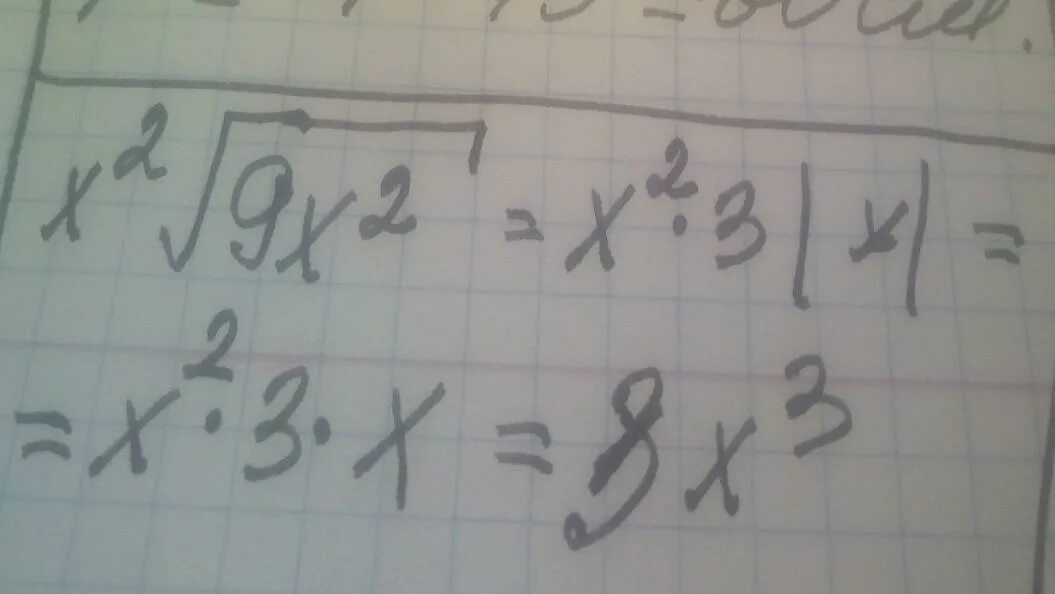 x²√9x² = x²·3|x| =
= x²·3·x = 3x³